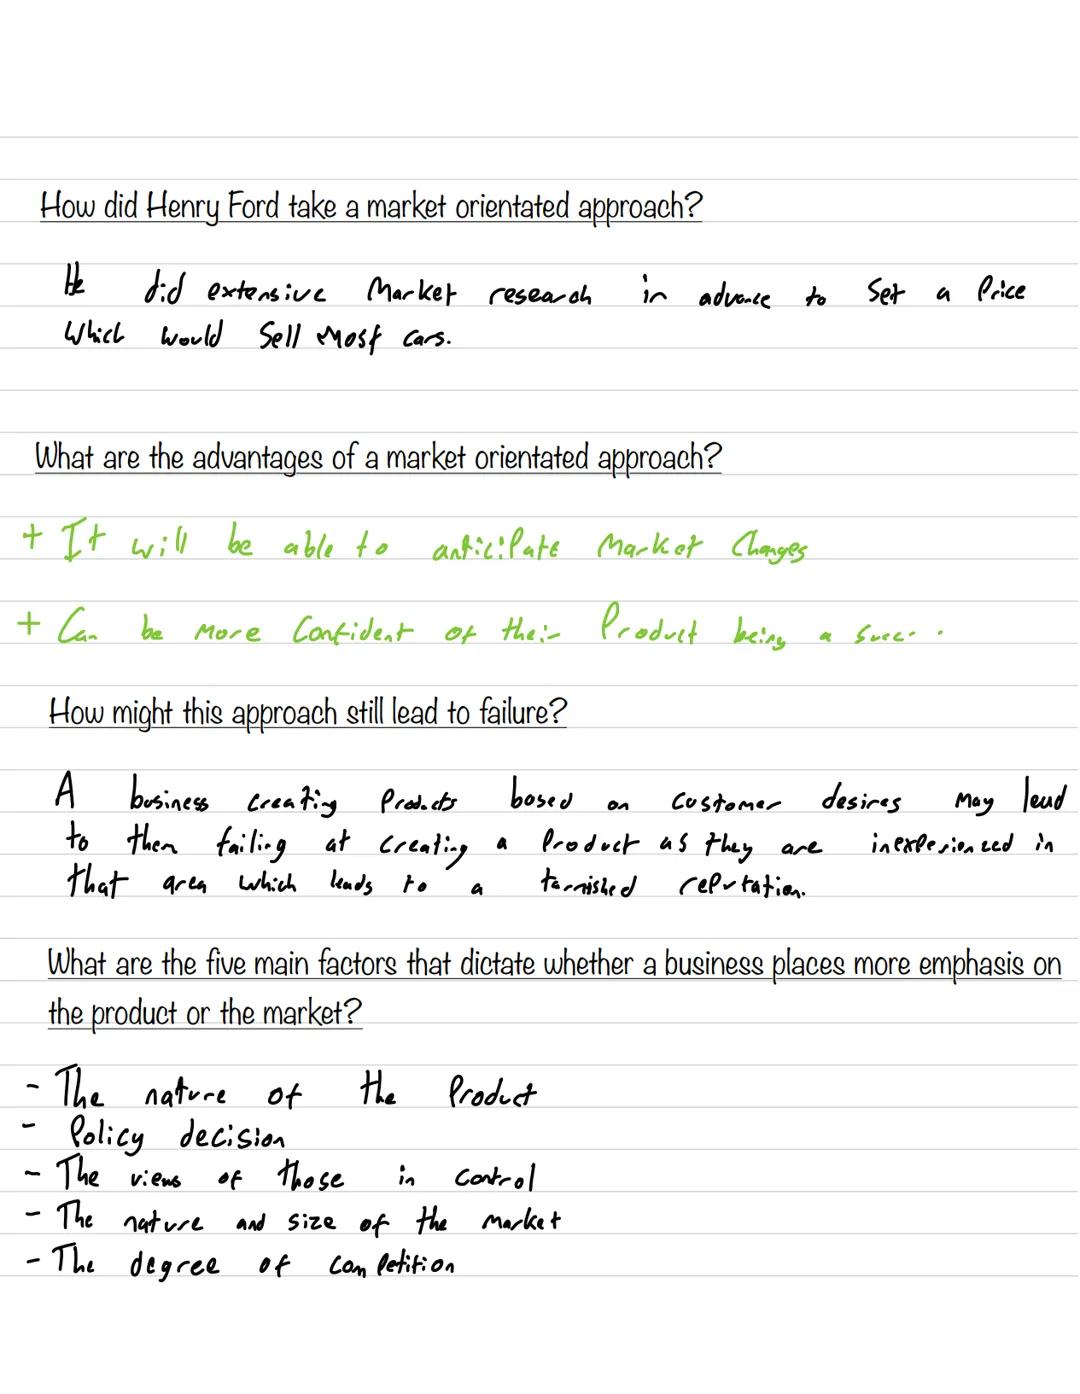 How did Henry Ford take a market orientated approach?
He did extensive Market research in advance to Set a Price
Which would Sell Most cars.
What are the advantages of a market orientated approach?
+ It will be able to anticipate Market Changes
+ Can be More Confident of their Product being a
How might this approach still lead to failure?
A business creating Products based on customer desires May lead
to them failing at creating a Product as they are inexperienced in
that area which leads to a tarnished reputation.
What are the five main factors that dictate whether a business places more emphasis on
the product or the market?
- The nature of the Product
- Policy decision
- The views of those in control
- The nature and size of the Market
- The degree of competition